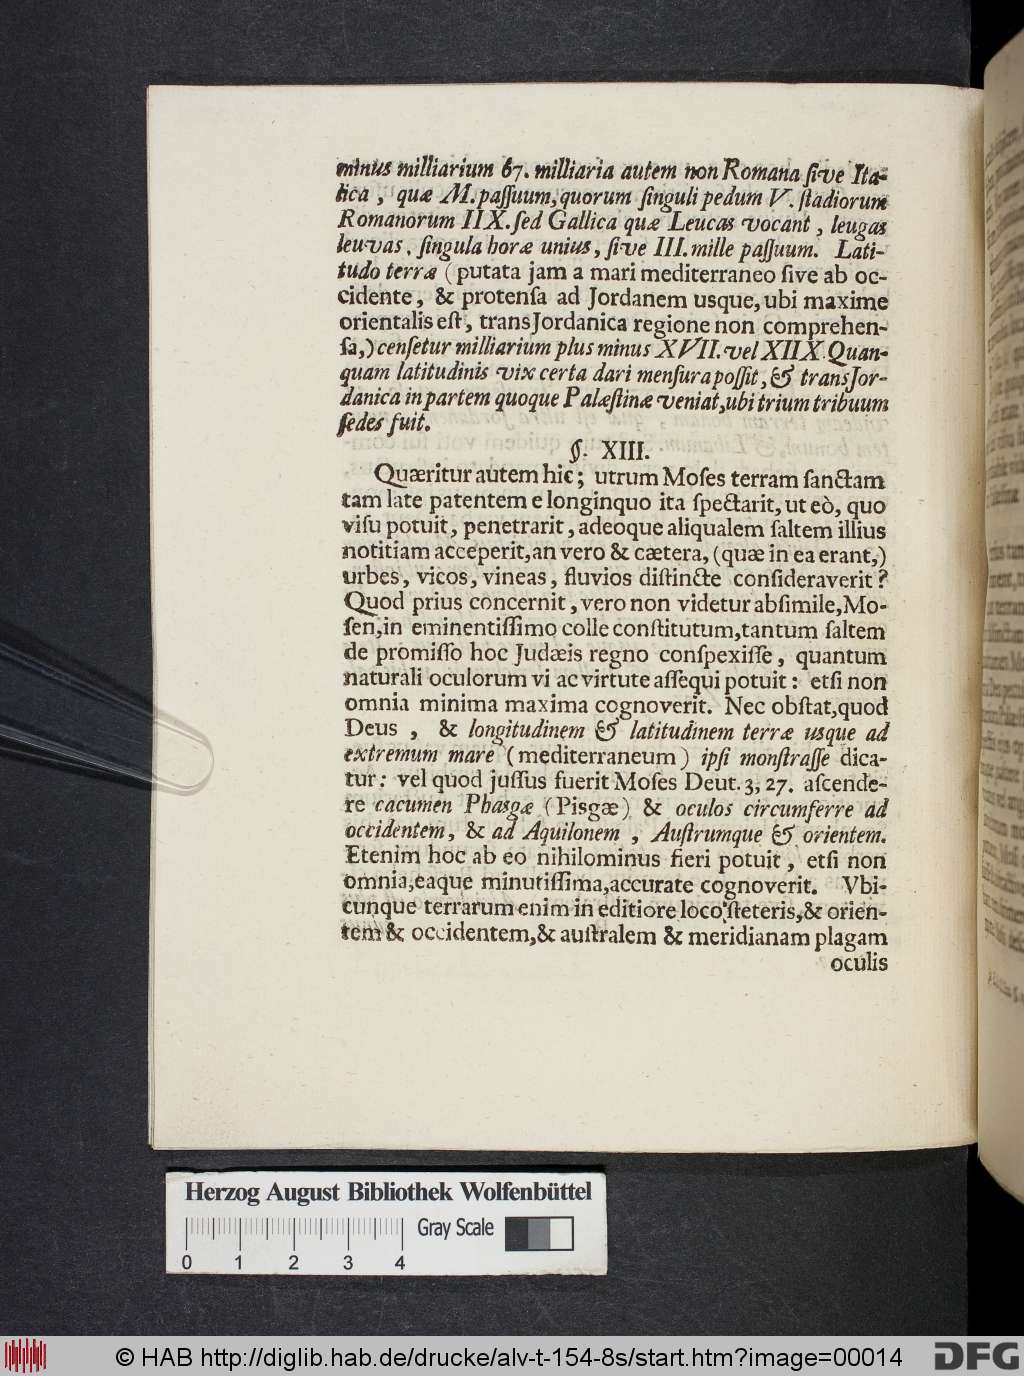 minus milliarium 67. milliaria autem non Romana ſive Ita-
lica, quæ M. paſſuum, quorum ſinguli pedum V. ſtadiorum
Romanorum IIX. ſed Gallica quæ Leucas vocant, leugas
leuvas, ſingula horæ unius, ſive III. mille paſſuum. Lati-
tudo terræ (putata jam a mari mediterraneo ſive ab oc-
cidente, & protenſa ad Jordanem usque, ubi maxime
orientalis eſt, transJordanica regione non comprehen-
ſa,) cenſetur milliarium plus minus XVII. vel XIIX. Quan-
quam latitudinis vix certa dari menſura poſſit, & transJor-
danica in partem quoque Palæſtinæ veniat, ubi trium tribuum
ſedes fuit.
§. XIII.
Quæritur autem hic; utrum Moſes terram ſanctam
tam late patentem e longinquo ita ſpectarit, ut eò, quo
viſu potuit, penetrarit, adeoque aliqualem ſaltem illius
notitiam acceperit, an vero & cætera, (quæ in ea erant,)
urbes, vicos, vineas, fluvios diſtincte conſideraverit?
Quod prius concernit, vero non videtur abſimile, Mo-
ſen, in eminentiſſimo colle conſtitutum, tantum ſaltem
de promiſſo hoc Judæis regno conſpexiſſe, quantum
naturali oculorum vi ac virtute aſſequi potuit: etſi non
omnia minima maxima cognoverit. Nec obſtat, quod
Deus, & longitudinem & latitudinem terræ usque ad
extremum mare (mediterraneum) ipſi monſtraſſe dica-
tur: vel quod juſſus fuerit Moſes Deut. 3, 27. aſcende-
re cacumen Phasgæ (Pisgæ) & oculos circumferre ad
occidentem, & ad Aquilonem, Auſtrumque & orientem.
Etenim hoc ab eo nihilominus fieri potuit, etſi non
omnia, eaque minutiſſima, accurate cognoverit. Vbi-
cunque terrarum enim in editiore loco ſteteris, & orien-
tem & occidentem, & auſtralem & meridianam plagam
oculis
Herzog August Bibliothek Wolfenbüttel
Gray Scale
0 1 2 3 4
© HAB http://diglib.hab.de/drucke/alv-t-154-8s/start.htm?image=00014
DFG